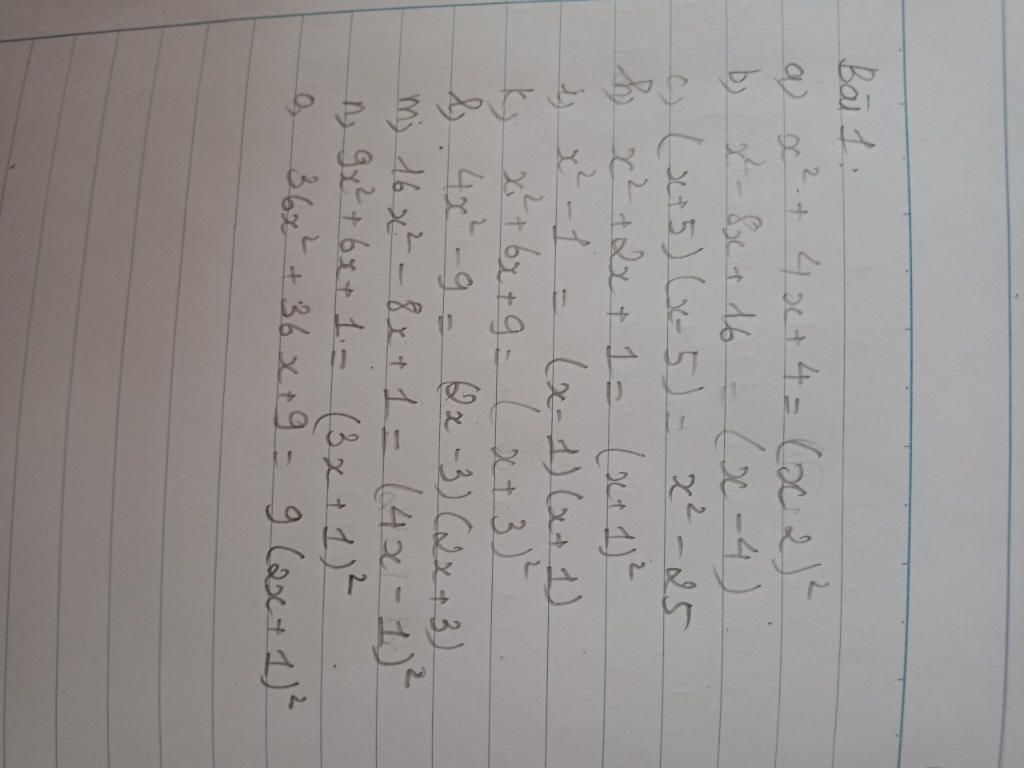 Bài 1:
a) x² + 4x + 4 = (x + 2)²
b) x² - 8x + 16 = (x - 4)
c) (x+5)(x-5) = x² - 25
h) x² + 2x + 1 = (x+1)²
i) x² - 1 = (x-1)(x+1)
k) x² + 6x + 9 = (x+3)²
l) 4x² - 9 = (2x - 3)(2x+3)
m) 16x² - 8x + 1 = (4x - 1)²
n) 9x² + 6x + 1 = (3x + 1)²
o) 36x² + 36x + 9 = 9(2x+1)²